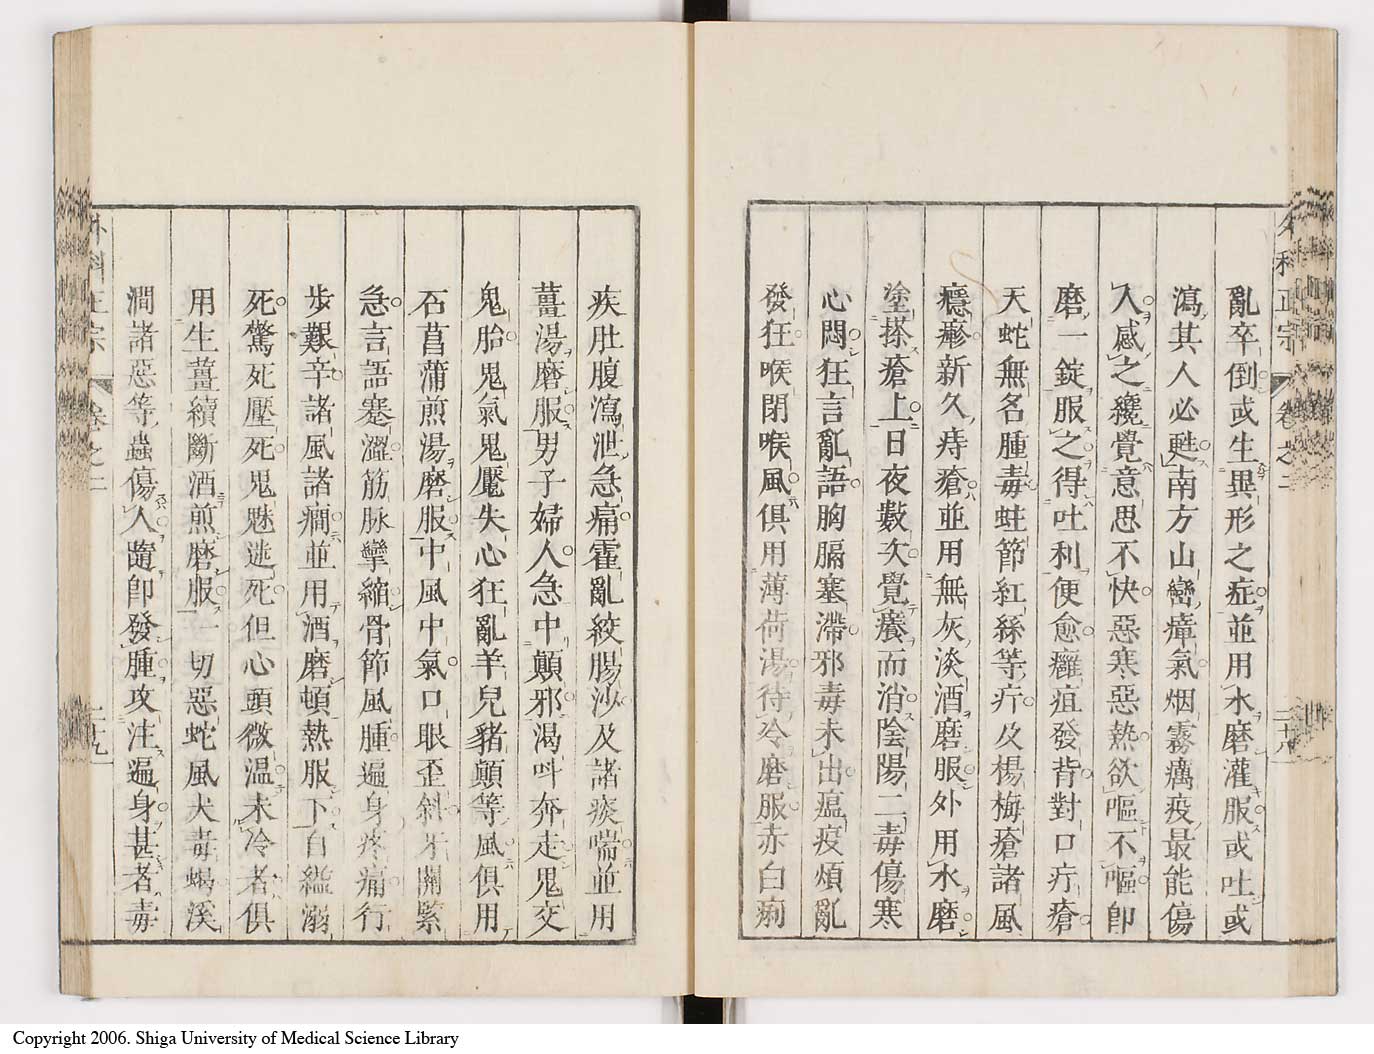 外科正宗 卷之二 二十八
亂卒倒或生異形之症並用水磨灌服或吐或
瀉其人必甦南方山巒瘴氣烟霧癘疫最能傷
人感之纔覺意思不快惡寒惡熱欲嘔不嘔卽
磨一錠服之得吐利便愈癰疽發背對口疔瘡
天蛇無名腫毒蛀節紅絲等疔及楊梅瘡諸風
癮疹新久痔瘡並用無灰淡酒磨服外用水磨
塗搽瘡上日夜數次覺癢而消陰陽二毒傷寒
心悶狂言亂語胸膈塞滯邪毒未出瘟疫煩亂
發狂喉閉喉風俱用薄荷湯待冷磨服赤白痢
疾肚腹瀉泄急痛霍亂絞腸沙及諸痰喘並用
薑湯磨服男子婦人急中顛邪渴呌奔走鬼交
鬼胎鬼氣鬼魘失心狂亂羊兒豬顛等風俱用
石菖蒲煎湯磨服中風中氣口眼歪斜牙關緊
急言語蹇澀筋脉攣縮骨節風腫遍身疼痛行
步艱辛諸風諸癇並用酒磨頓熱服下自縊溺
死驚死壓死鬼魅迷死但心頭微温未冷者俱
用生薑續斷酒煎磨服一切惡蛇風犬毒蝎溪
澗諸惡等蟲傷人隨卽發腫攻注遍身甚者毒
外科正宗 卷之二 二十九
Copyright 2006. Shiga University of Medical Science Library